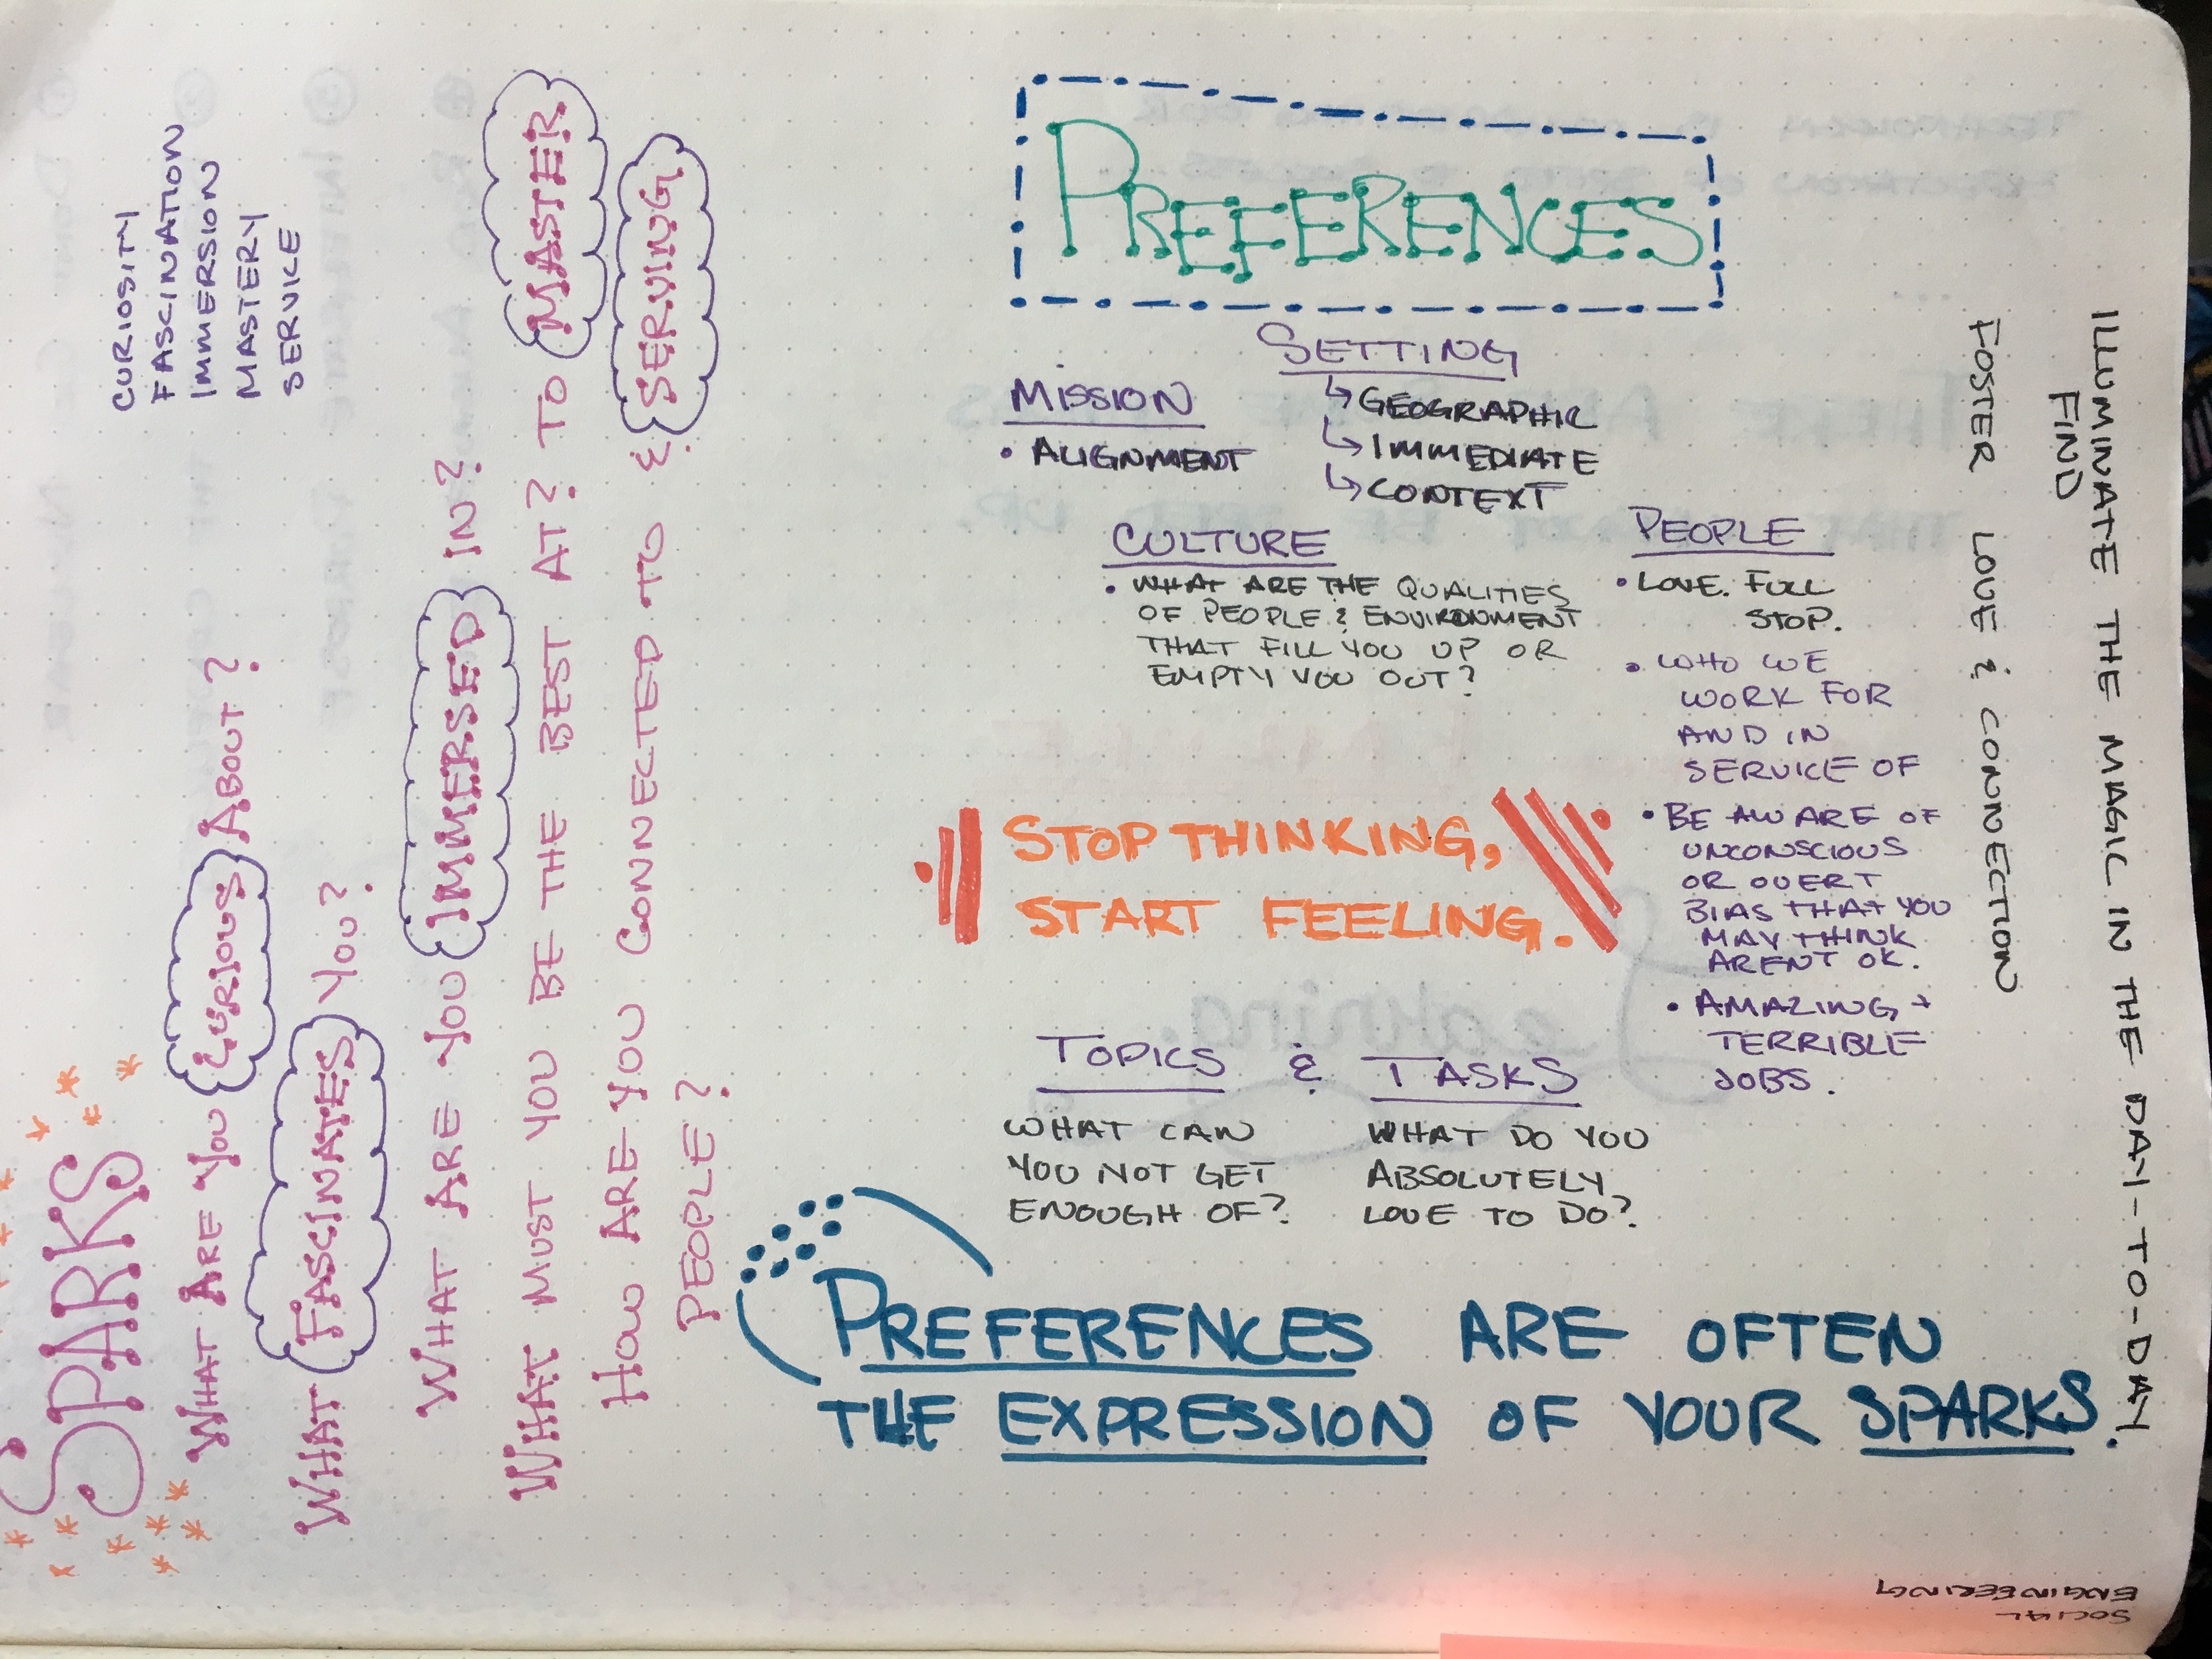 SPARKS
WHAT ARE YOU CURIOUS ABOUT?
WHAT FASCINATES YOU?
WHAT ARE YOU IMMERSED IN?
WHAT MUST YOU BE THE BEST AT? TO MASTER
HOW ARE YOU CONNECTED TO & SERVING
PEOPLE?
CURIOSITY
FASCINATION
IMMERSION
MASTERY
SERVICE
PREFERENCES
SETTING
↳ GEOGRAPHIC
↳ IMMEDIATE
↳ CONTEXT
MISSION
• ALIGNMENT
CULTURE
• WHAT ARE THE QUALITIES
OF PEOPLE & ENVIRONMENT
THAT FILL YOU UP OR
EMPTY YOU OUT?
PEOPLE
• LOVE. FULL
STOP.
• WHO WE
WORK FOR
AND IN
SERVICE OF
• BE AWARE OF
UNCONSCIOUS
OR OVERT
BIAS THAT YOU
MAY THINK
ARENT OK.
• AMAZING +
TERRIBLE
JOBS.
STOP THINKING,
START FEELING.
TOPICS & TASKS
WHAT CAN
YOU NOT GET
ENOUGH OF?
WHAT DO YOU
ABSOLUTELY
LOVE TO DO?
PREFERENCES ARE OFTEN
THE EXPRESSION OF YOUR SPARKS.
ILLUMINATE THE MAGIC IN THE DAY-TO-DAY
FIND
FOSTER LOVE & CONNECTION
SOCIAL
ENGINEERING